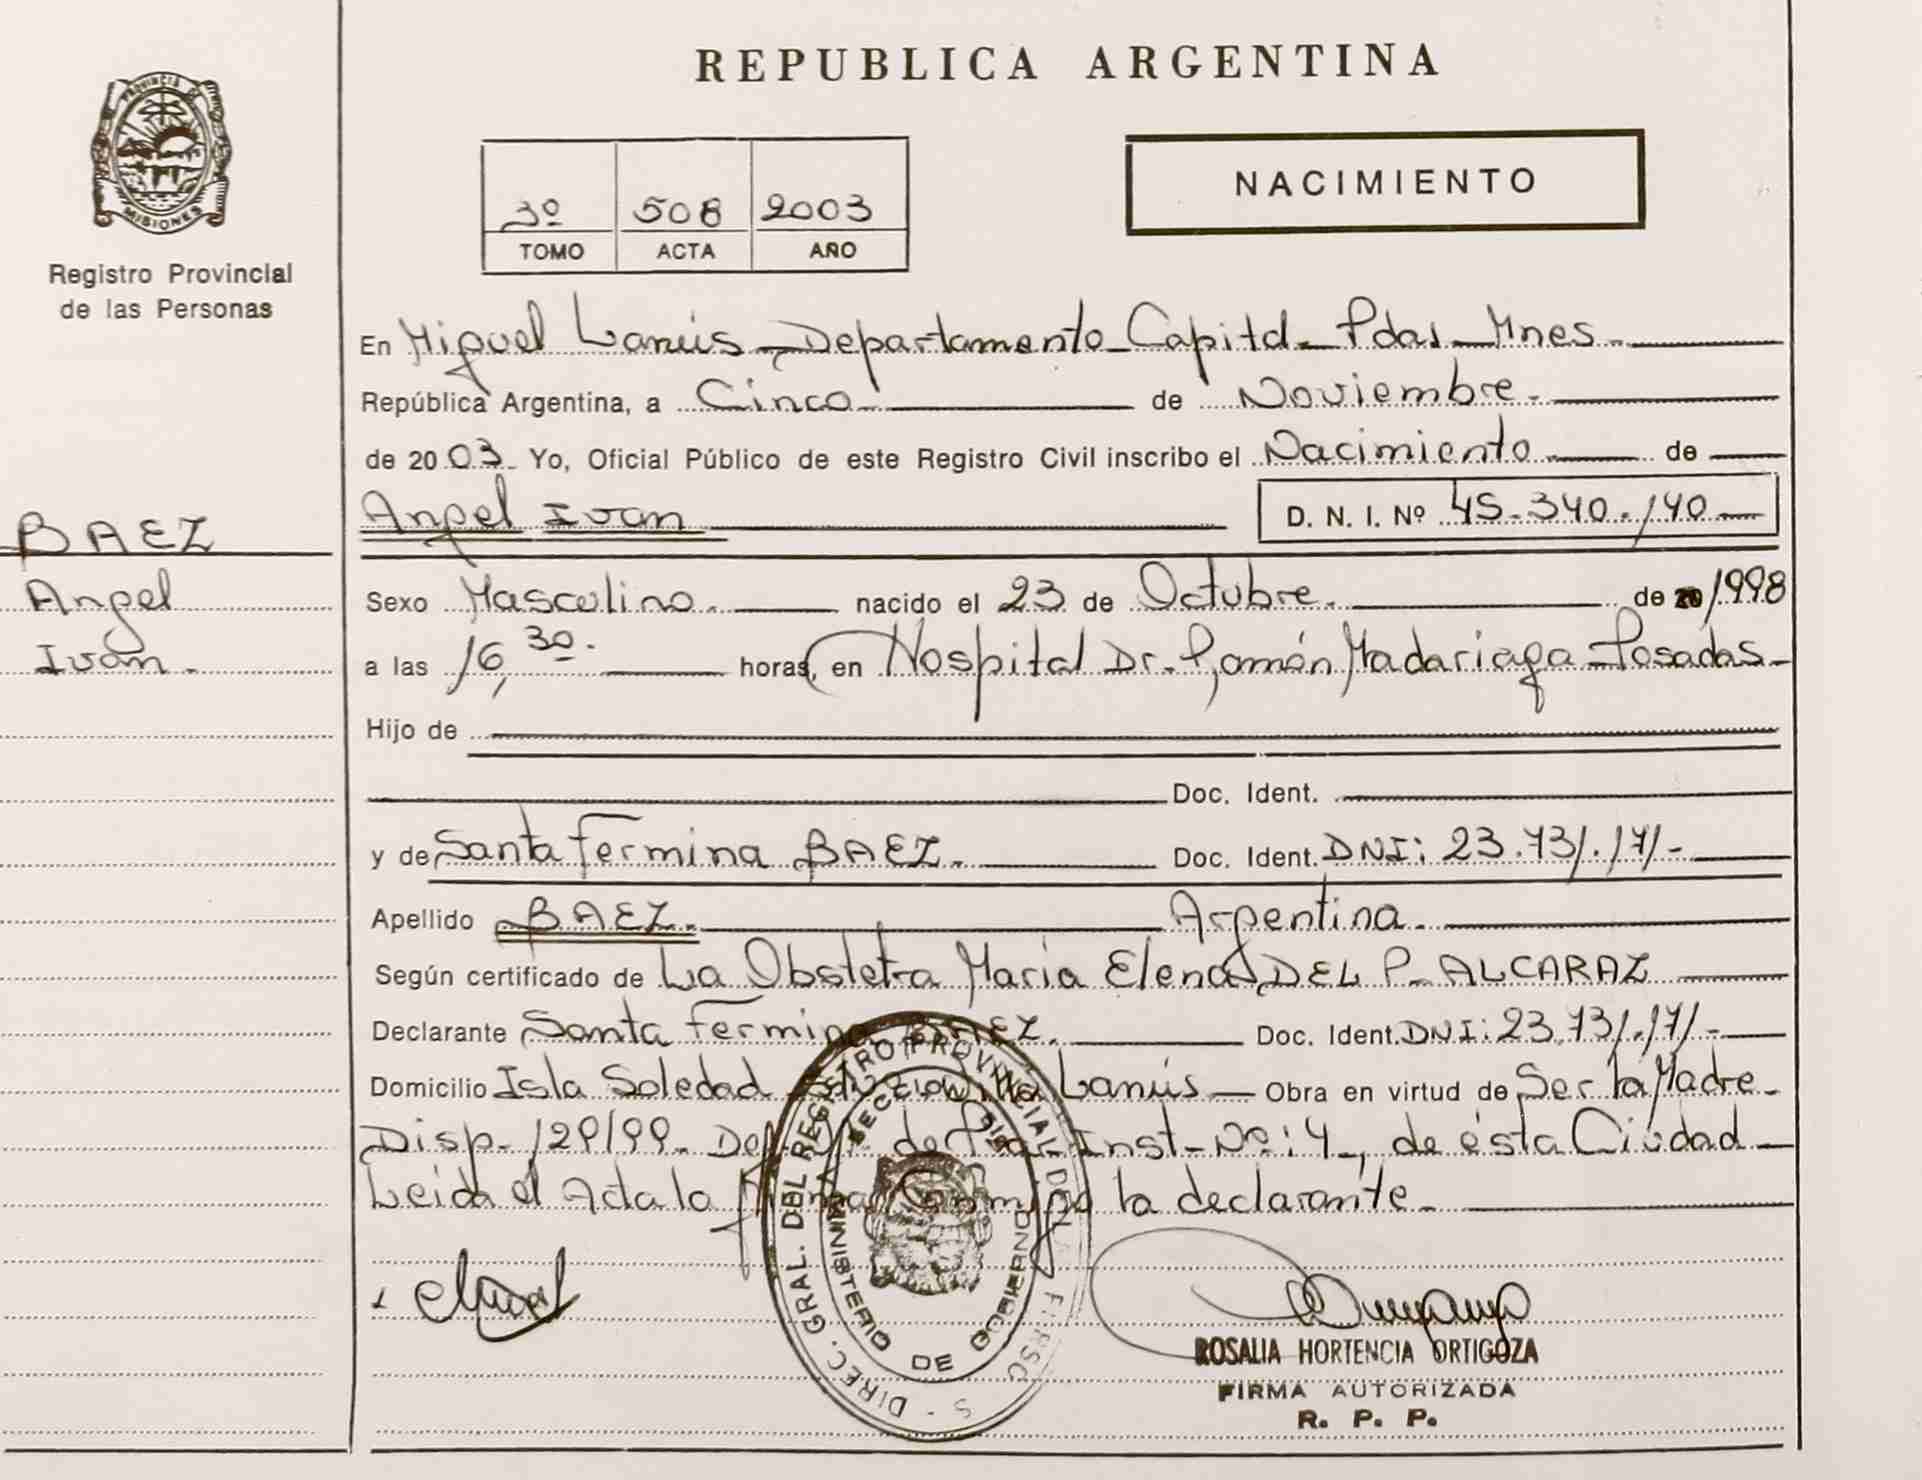 REPUBLICA ARGENTINA
PROVINCIA DE
MISIONES
Registro Provincial
de las Personas
3º 508 2003
TOMO ACTA AÑO
NACIMIENTO
En Miguel Lanús - Departamento Capital - Pdas - Mnes.
República Argentina, a Cinco de Noviembre.
de 2003. Yo, Oficial Público de este Registro Civil inscribo el Nacimiento de
BAEZ
Angel Ivan D. N. I. Nº 45.340.140
Angel
Iván.
Sexo Masculino. nacido el 23 de Octubre. de 20 1998
a las 16,30. horas, en Hospital Dr. Ramón Madariaga - Posadas -
Hijo de
Doc. Ident.
y de Santa Fermina BAEZ. Doc. Ident. DNI: 23.731.171-
Apellido BAEZ. Argentina.
Según certificado de La Obstetra María Elena DEL P. ALCARAZ
Declarante Santa Fermina BAEZ. Doc. Ident. DNI: 23.731.171-
Domicilio Isla Soledad Lanús - Obra en virtud de Ser la Madre -
Disp. 129/99. de Inst - Nº: 4, de ésta Ciudad -
Leida el Acta la firma Conmigo la declarante.
DIREC. GRAL. DEL REGISTRO PROVINCIAL DE LA S PERSO
MINISTERIO DE GOBIERNO
ROSALIA HORTENCIA ORTIGOZA
FIRMA AUTORIZADA
R. P. P.